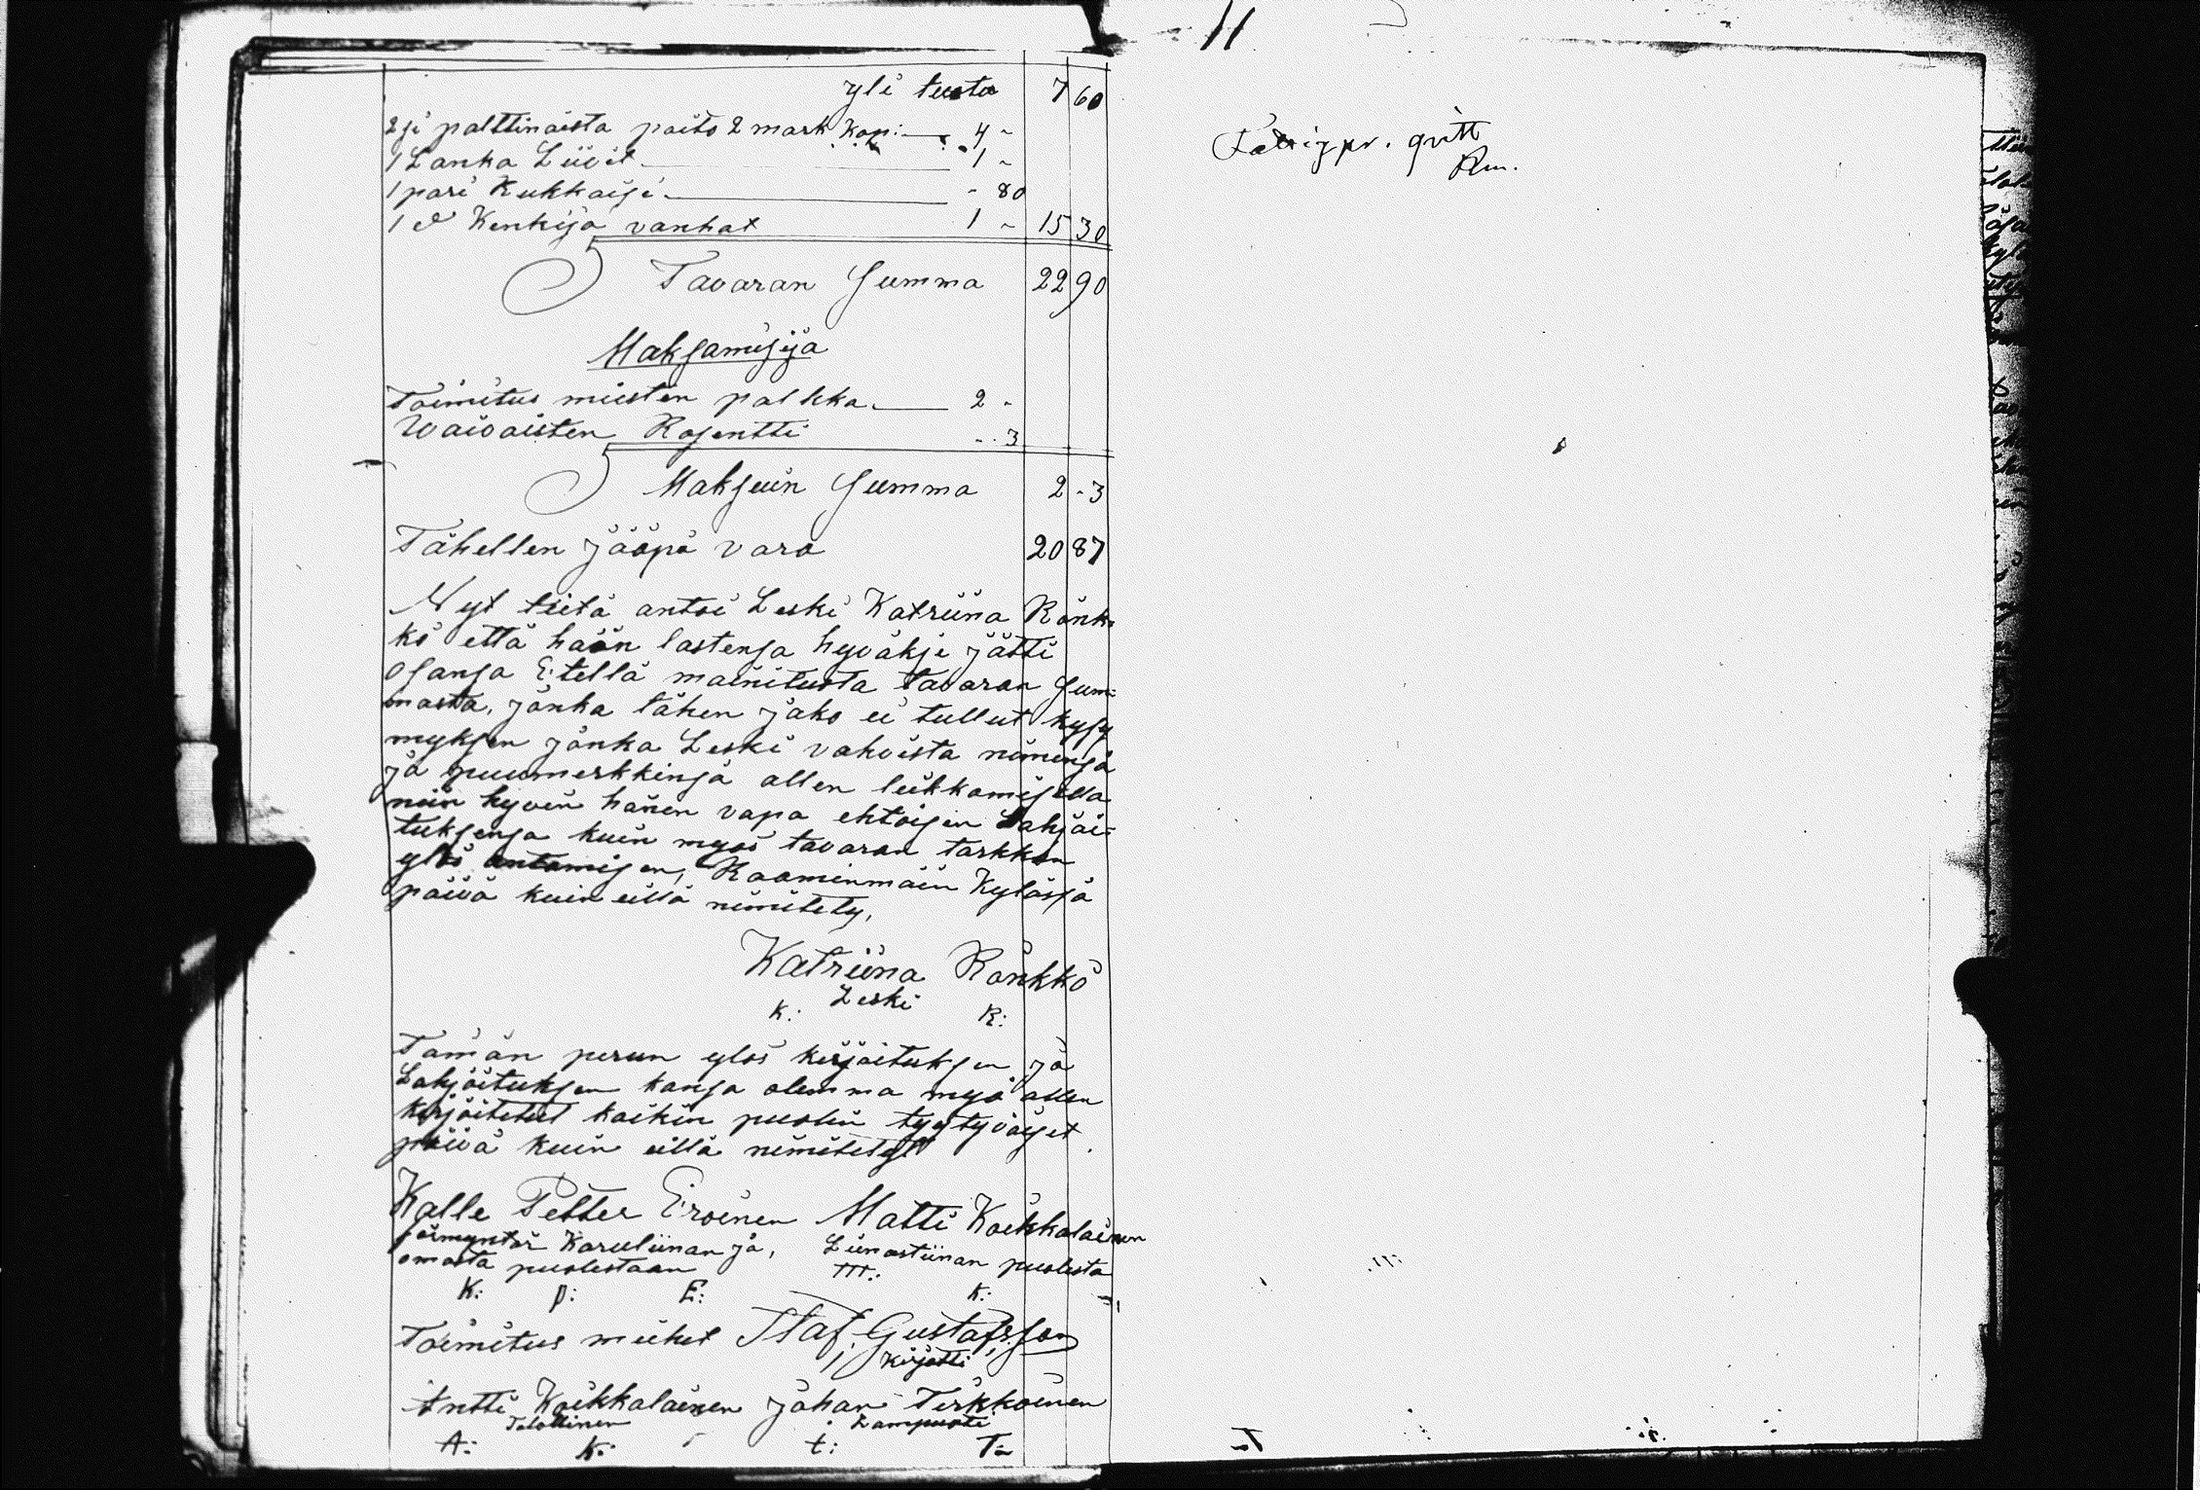 11
yli tuota 7 60
2 si palttinaista paito 2 mark Kap: 4 -
1 Lanka Liivit 1 -
1 pari Kukkaisi - 80
1 d Kenkijä vanhat 1 - 15 30
Tavaran Summa 22 90
Maksamisija
Toimitus miesten palkka 2 -
Waivaisten Rosentti - 3
Maksuin Summa 2 - 3
Tähellen jääpä vara 20 87
Nyt tietä antoi Leski Katriina Rönk-
kö että hään lastensa hyväksi jätti
osansa Etellä mainitusta tavaran Sum=
masta, jonka tähen jako ei tullut kysy
myksen jonka Leski vahvista nimensä
ja puumerkkinsä allen leikkamisella
niin hyvin hänen vapa ehtoisen Lahjoi=
tuksensa kuin myös tavaran tarkkan
ylös antamisen, Raaminmäin Kylässä
päivä kuin eillä nimitety,
Katriina Rönkkö
Leski
K: R:
Tämän perun ylös kirjoituksen ja
Lahjoituksen kansa olemma myö allen
kirjoitetut kaikin puolin tyytyväiset
päivä kuin eillä nimitetyt.
Kalle Petter Eroinen Matti Koikkalainen
förmyntär Karuliinan ja, Liinastiinan puolesta
omasta puolestaan
m: K:
K: P: E:
Toimitus miehet Staf. Gustafsson
Kirjotti
Antti Koikkalainen Johan Tirkkoinen
Talollinen Lampuoti
A: K: t: T:
qvitt